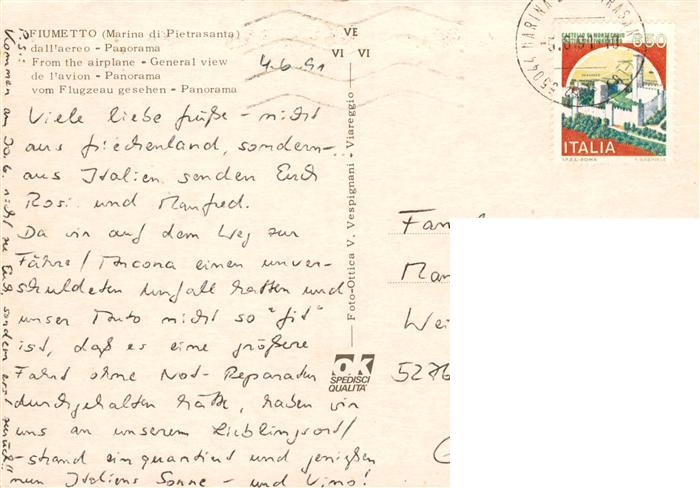 FIUMETTO (Marina di Pietrasanta)
dall'aereo - Panorama
From the airplane - General view
de l'avion - Panorama
vom Flugzeau gesehen - Panorama
VE
VI VI
4.6.91
Viele liebe Grüße - nicht
aus Griechenland, sondern -
aus Italien senden Euch
Rosi und Manfred.
Da wir auf dem Weg zur
Fähre/Ancona einen unver-
schuldeten Unfall hatten und
unser Auto nicht so "fit"
ist, daß es eine größere
Fahrt ohne Not-Reparaturen
durchgehalten hätte, haben wir
uns an unserem Lieblingsort/
-strand einquartiert und genießen
nun Italiens Sonne - und Vino!
P.S.:
Kommen am 30.6. nicht zu Euch, sondern erst zurück!!
Foto-Ottica V. Vespignani - Viareggio
ok
SPEDISCI
QUALITA'
55044 MARINA
650
ITALIA
I.P.Z.S.-ROMA
Fam
Man
Wei
5276